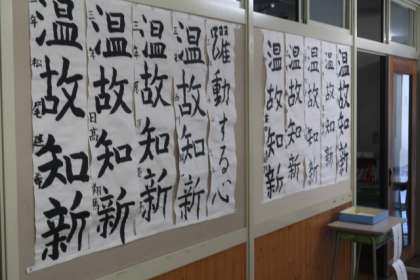 躍動する心
温故知新
温故知新
温故知新
日高
温故知新
三年
温故知新
温故知新
温故知新
温故知新
温故知新